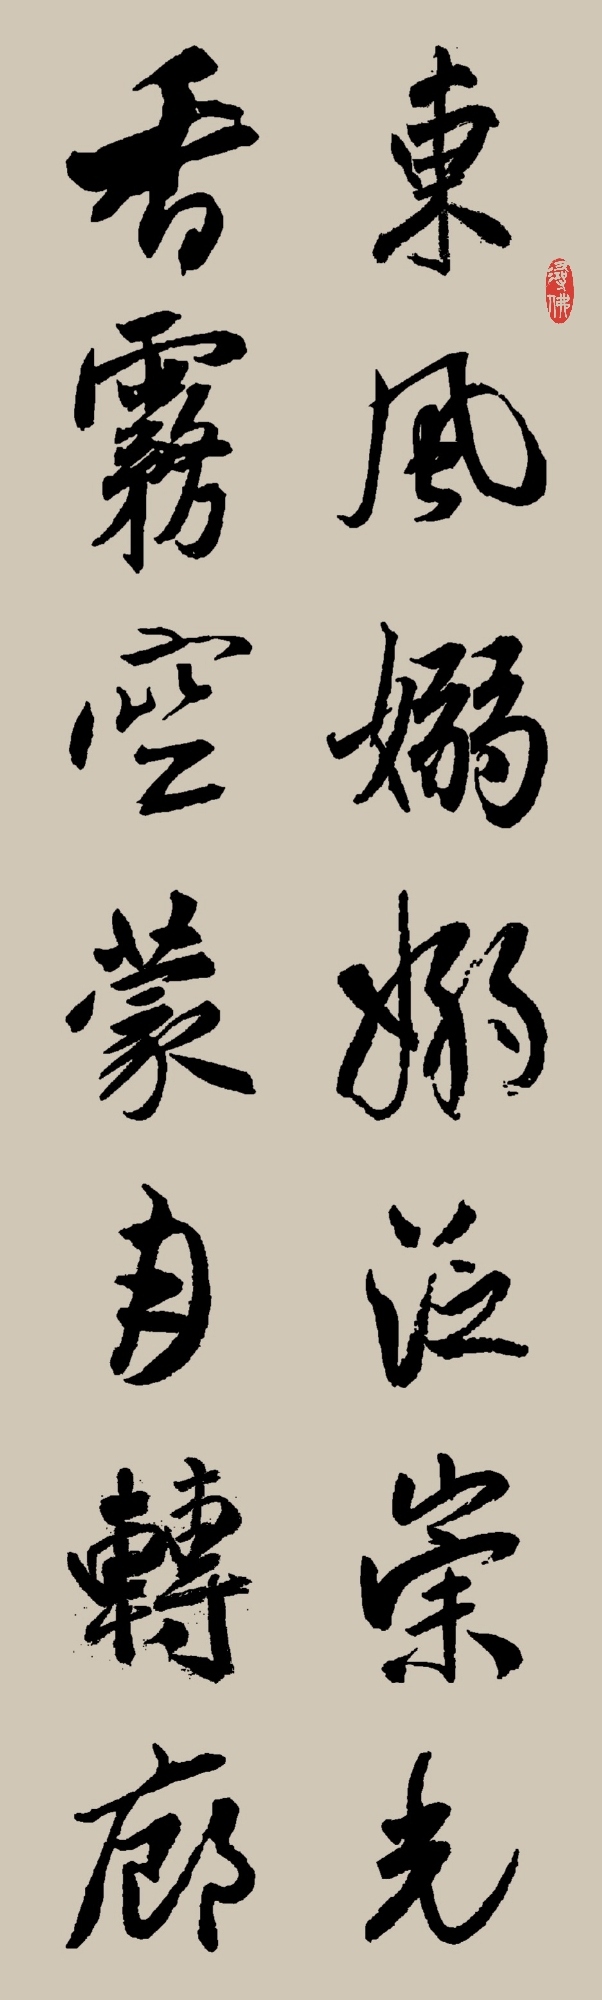 東風嫋嫋泛崇光
香霧空蒙月轉廊
尋佛